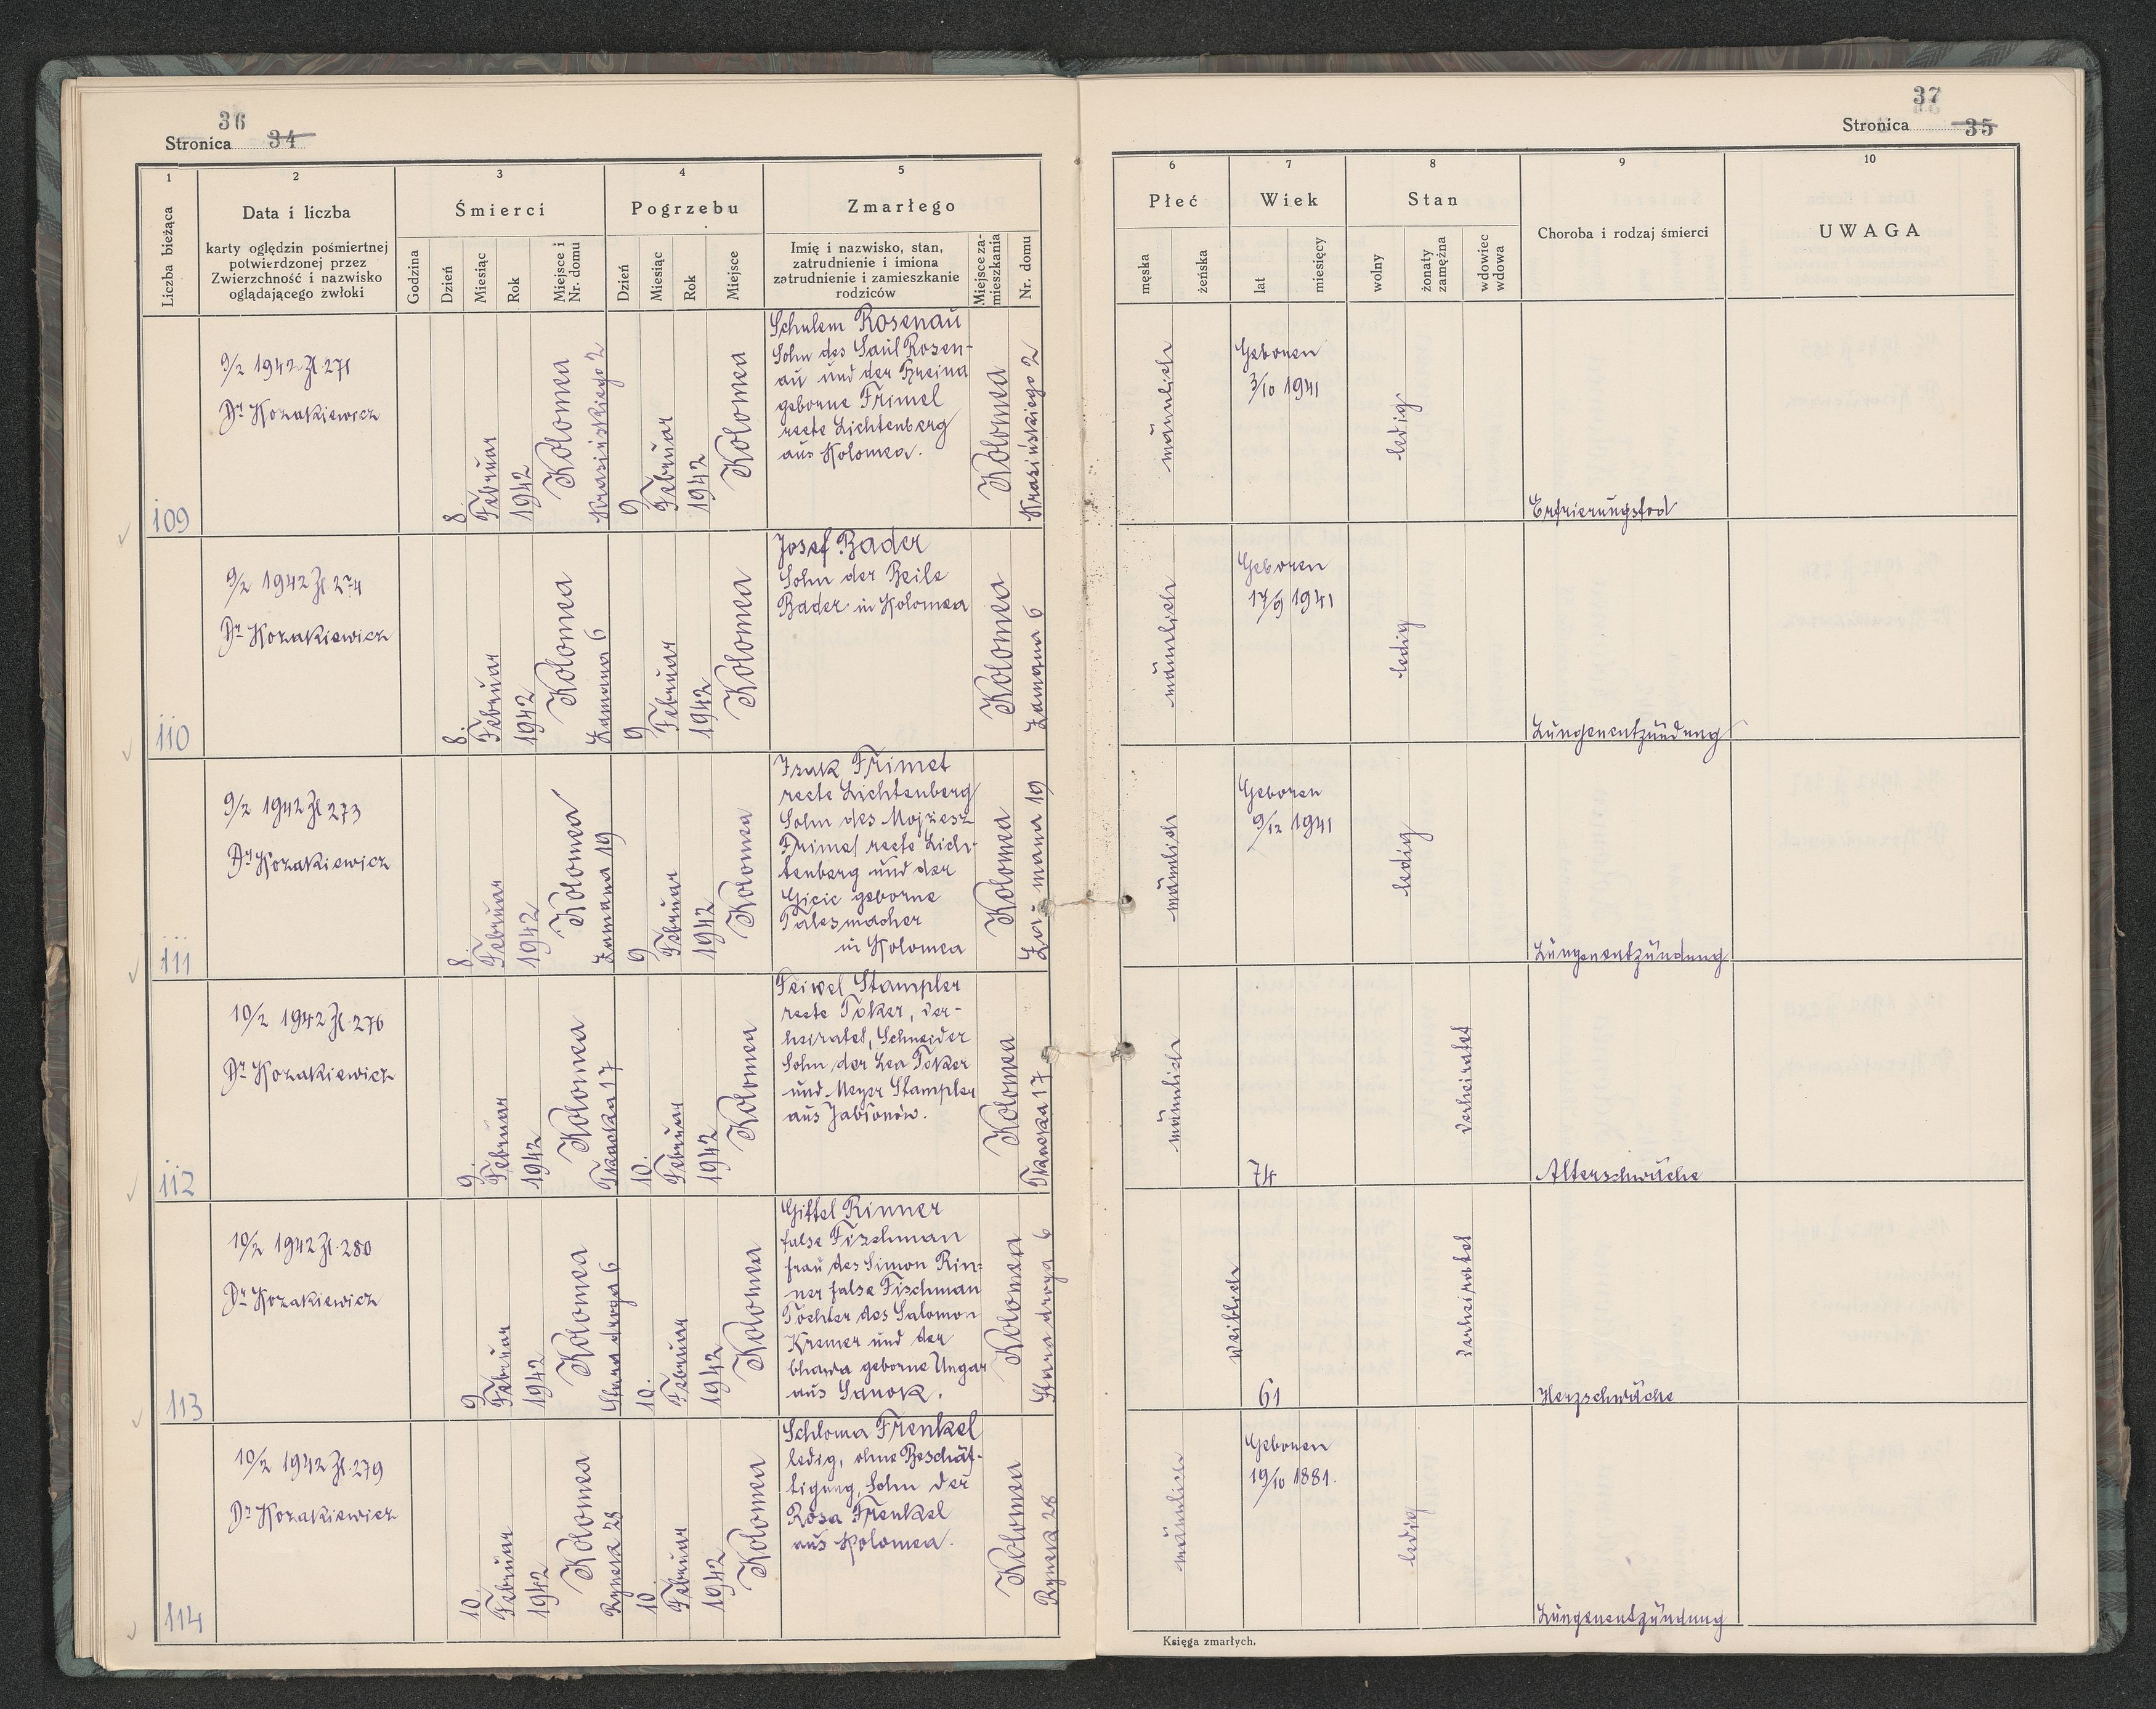 36
Stronica 34
1
2
3
4
5
Liczba bieżąca
Data i liczba
karty oględzin pośmiertnej
potwierdzonej przez
Zwierzchność i nazwisko
oglądającego zwłoki
Śmierci
Godzina
Dzień
Miesiąc
Rok
Miejsce i
Nr. domu
Pogrzebu
Dzień
Miesiąc
Rok
Miejsce
Zmarłego
Imię i nazwisko, stan,
zatrudnienie i imiona
zatrudnienie i zamieszkanie
rodziców
Miejsce za-
mieszkania
Nr. domu
109
9/2 1942 Zl. 271
Dr Kozakiewicz
8.
Februar
1942
Kolomea
Krasińskiego 2
9
Februar
1942
Kolomea
Schulem Rosenau
Sohn des Saul Rosen-
au und der Breina
geborne Frimel
recte Lichtenberg
aus Kolomea.
Kolomea
Krasińskiego 2
110
9/2 1942 Zl. 274
Dr Kozakiewicz
8.
Februar
1942
Kolomea
6
9
Februar
1942
Kolomea
Josef Bader
Sohn der Beile
Bader in Kolomea
Kolomea
6
111
9/2 1942 Zl 273
Dr Kozakiewicz
8.
Februar
1942
Kolomea
19
9
Februar
1942
Kolomea
Izak Frimet
recte Lichtenberg
Sohn des Mojzesz
Frimet recte Lich-
tenberg und der
geborne
Talesmacher
in Kolomea
Kolomea
19
112
10/2 1942 Zl. 276
Dr Kozakiewicz
9.
Februar
1942
Kolomea
Tkacka 17
10.
Februar
1942
Kolomea
Feiwel Stampler
recte Toker, ver-
heiratet, Schneider
Sohn der Lea Toker
und Meyer Stampler
aus Jabłonów.
Kolomea
Tkacka 17
113
10/2 1942 Zl. 280
Dr Kozakiewicz
9.
Februar
1942
Kolomea
Stara droga 6
10.
Februar
1942
Kolomea
Gittel Rinner
false Fischman
frau des Simon Rin-
ner false Fischman
Tochter des Salomon
Kremer und der
Chawa geborne Ungar
aus Sanok.
Kolomea
Stara droga 6
114
10/2 1942 Zl. 279
Dr Kozakiewicz
10.
Februar
1942
Kolomea
Rynek 28
10.
Februar
1942
Kolomea
Schloma Frenkel
ledig, ohne Beschäf-
tigung, Sohn der
Rosa Frenkel
aus Kolomea.
Kolomea
Rynek 28
37
Stronica 35
6
7
8
9
10
Płeć
męska
żeńska
Wiek
lat
miesięcy
Stan
wolny
żonaty
zamężna
wdowiec
wdowa
Choroba i rodzaj śmierci
UWAGA
männlich
Geboren
3/10 1941
ledig
Erfrierungstod
männlich
Geboren
17/9 1941
ledig
Lungenentzündung
männlich
Geboren
9/12 1941
ledig
Lungenentzündung
männlich
74
verheiratet
Alterschwäche
weiblich
61
verheiratet
Herzschwäche
männlich
Geboren
19/10 1881.
ledig
Lungenentzündung
Księga zmarłych.